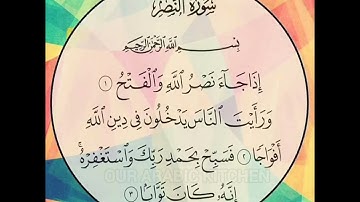 سُورَةُ النَّصْرِ
بِسْمِ اللَّهِ الرَّحْمَٰنِ الرَّحِيمِ
إِذَا جَآءَ نَصْرُ اللَّهِ وَالْفَتْحُ ١
وَرَأَيْتَ النَّاسَ يَدْخُلُونَ فِي دِينِ اللَّهِ
أَفْوَاجًا ٢ فَسَبِّحْ بِحَمْدِ رَبِّكَ وَاسْتَغْفِرْهُ ۚ
OUR ARABIC KITCHEN
إِنَّهُۥ كَانَ تَوَّابًا ٣